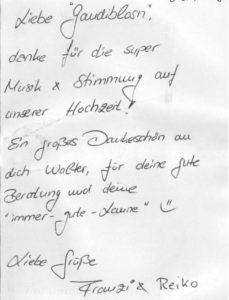 Liebe "Gaudiblosn",
danke für die super
Musik & Stimmung auf
unserer Hochzeit!
Ein großes Dankeschön an
dich Wolfter, für deine gute
Beratung und deine
"immer-gute-Laune" ☺
Liebe Grüße
Franzi & Reiko